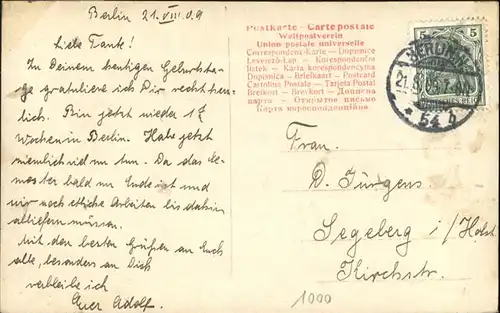 Berlin 21. VIII. 09
Liebe Tante!
Zu Deinem heutigen Geburtsta-
ge gratuliere ich Dir recht herz-
lich. Bin jetzt wieder 1½
Wochen in Berlin. Habe jetzt
ziemlich viel zu tun. Da das Se-
mester bald zu Ende ist und
wir noch etliche Arbeiten bis dahin
abliefern müssen.
Mit den besten Grüßen an Euch
alle, besonders an Dich
verbleibe ich
Euer Adolf.
Postkarte – Carte postale
Weltpostverein
Union postale universelle
Correspondenzkarte – Dopisnice
Levelező-Lap – Korespondenční
lístek – Karta korespondencyjna
Dopisnica – Briefkaart – Postcard
Cartolina Postale – Tarjeta Postal
Brevkort – Brevkort – Дописна
карта – Открытое письмо
Карта корреспонденційна
5 5
BERLIN
21. 8.
* 54 b
Frau.
D. Jürgens.
Segeberg i/Holst.
Kirchstr.
1000